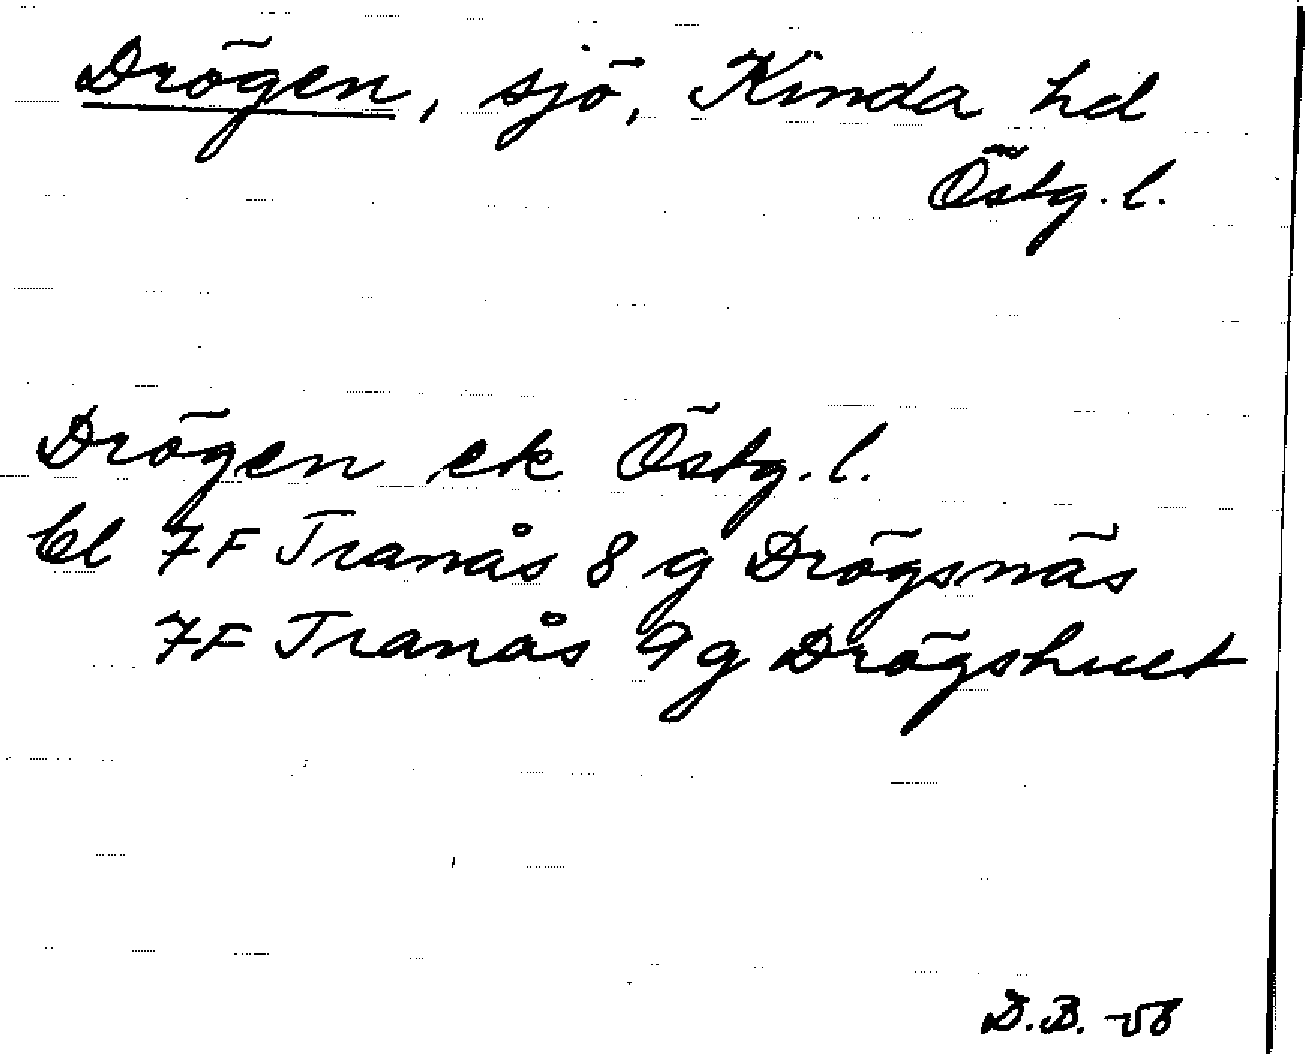 Drögen, sjö, Kinda hd
Östg. l.
Drögen ek Östg. l.
bl 7F Tranås 8 g Drögsnäs
7F Tranås 9 g Drögshult
D.B. -58